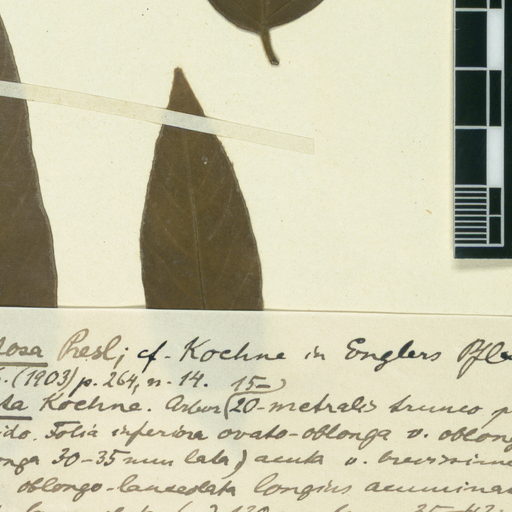 losa Presl; cf. Koehne in Englers Pfl
(1903) p. 264, n. 14. 15-
ta Koehne. Arbor (20-metralis trunco p
ido. Folia inferiora ovato-oblonga v. oblong
onga 30-35 mm lata) acuta v. brevissime
oblongo-lanceolata longius acuminat